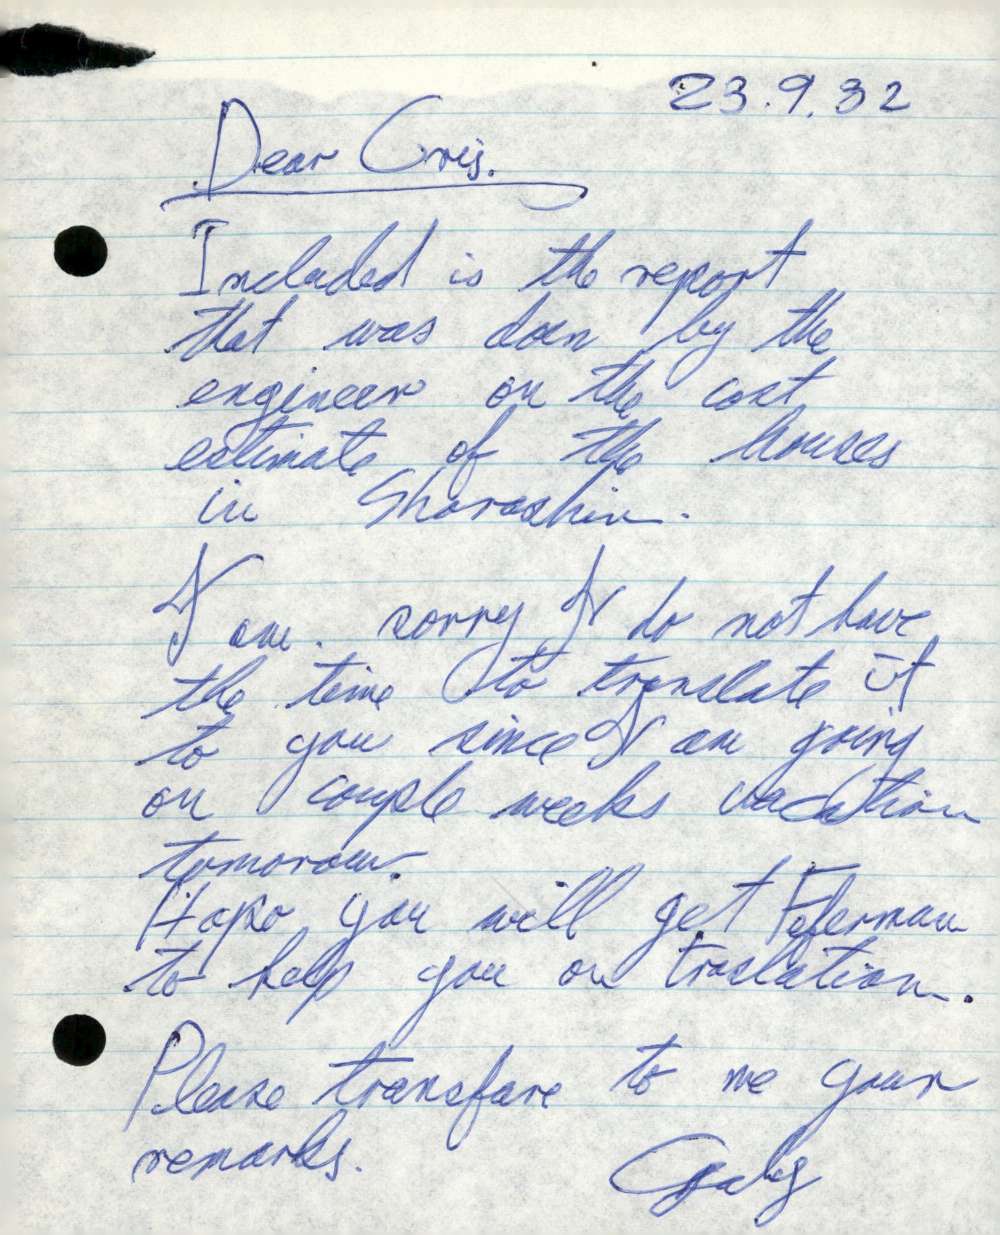 23.9.32
Dear Cris.
Included is the report
that was doen by the
engineer on the cost
estimate of the houses
in Sharashim.
I am. sorry I do not have
the time to translate it
to you since I am going
on couple weeks vacation
tomorow.
Hope you will get Feferman
to help you on traslation.
Please transfare to me your
remarks.